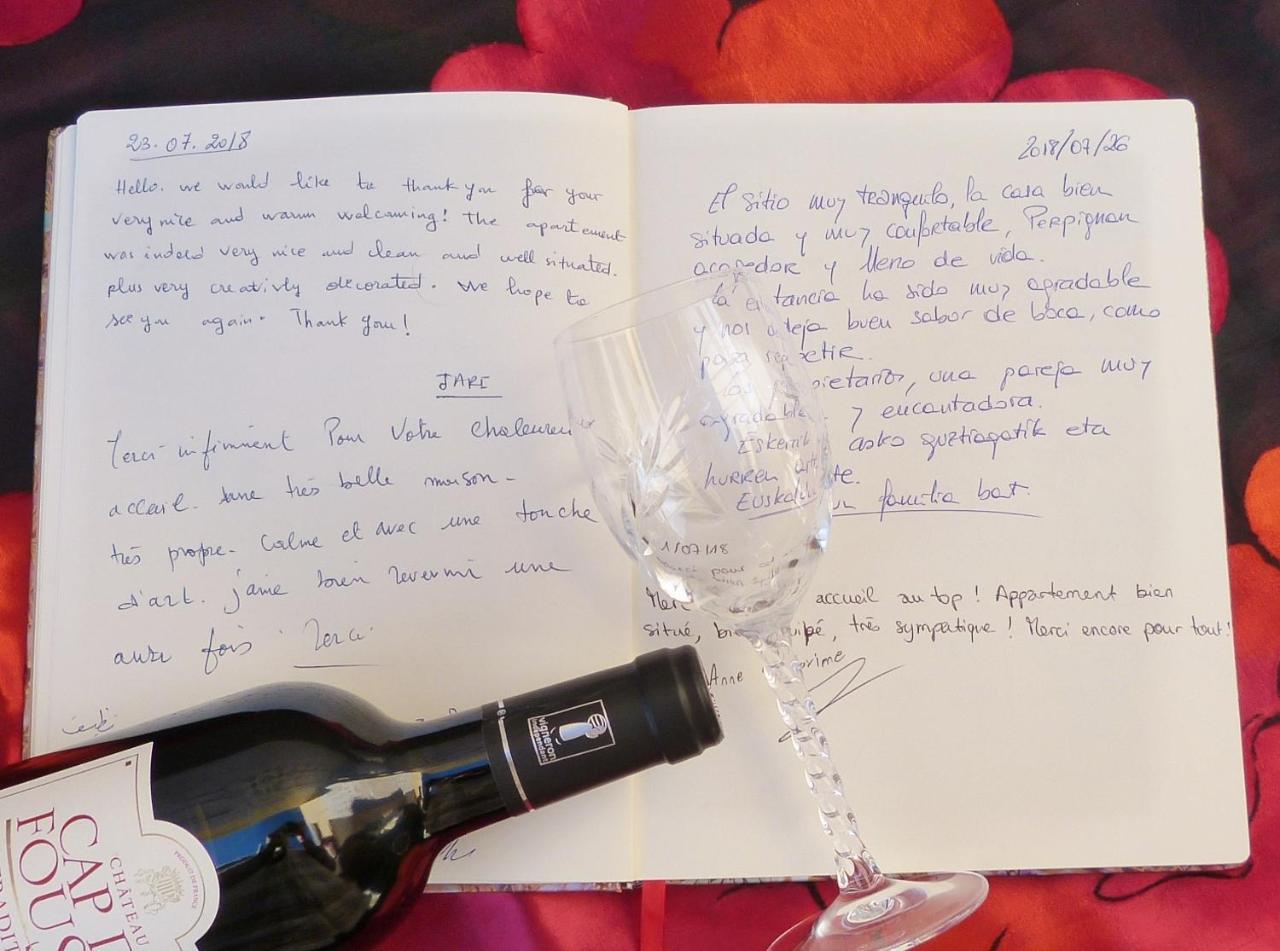 23.07.2018
Hello. we would like to thank you for your
very nice and warm welcoming! the apartement
was indeed very nice and clean and well situated.
plus very creativly decorated. We hope to
see you again. Thank you!
JARI
Merci infiniment Pour Votre chaleureux
accueil. une très belle maison.
très propre. Calme et avec une touche
d'art. j'aime bien revenir une
autre fois Merci
2018/07/26
El sitio muy tranquilo, la casa bien
situada y muy confortable, Perpignan
acogedor y lleno de vida.
La estancia ha sido muy agradable
y nos deja buen sabor de boca, como
para repetir.
Los propietarios, una pareja muy
agradable y encantadora.
Eskerrik asko guztiagatik eta
hurren arte.
familia bat.
1/07/18
Merci accueil au top! Appartement bien
situé, bien équipé, très sympatique! Merci encore pour tout!
Anne
vigneron
indépendant
CHÂTEAU
CAP
FOUS